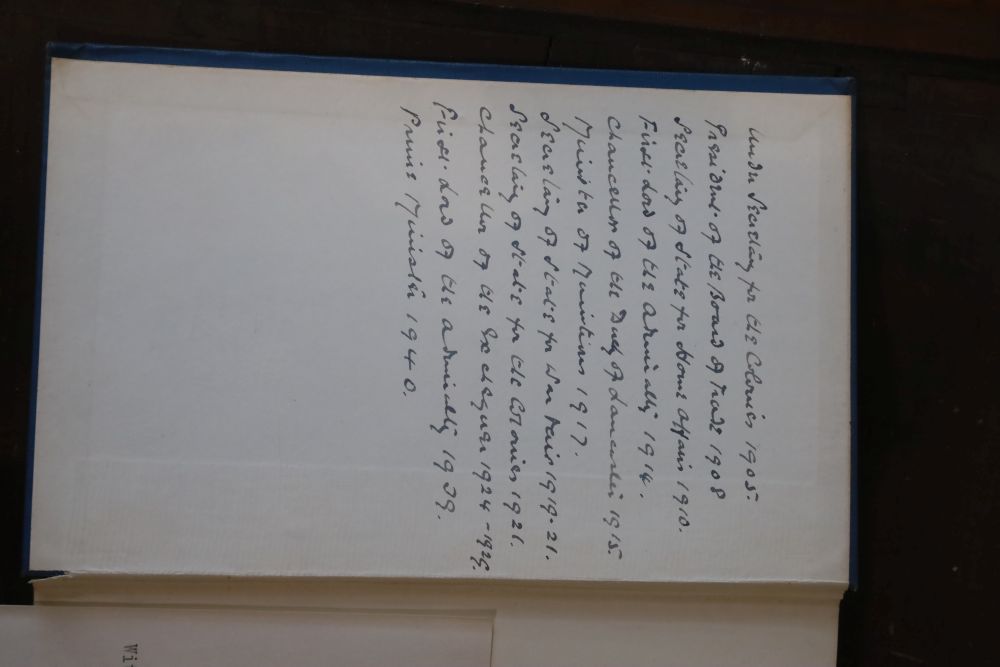 Under Secretary for the Colonies 1905.
President of the Board of Trade 1908
Secretary of State for Home Affairs 1910.
First Lord of the Admiralty 1914.
Chancellor of the Duchy of Lancaster 1915.
Minister of Munitions 1917.
Secretary of State for War 1919-21.
Secretary of State for the Colonies 1921.
Chancellor of the Exchequer 1924-1929.
First Lord of the Admiralty 1939.
Prime Minister 1940.
Wi